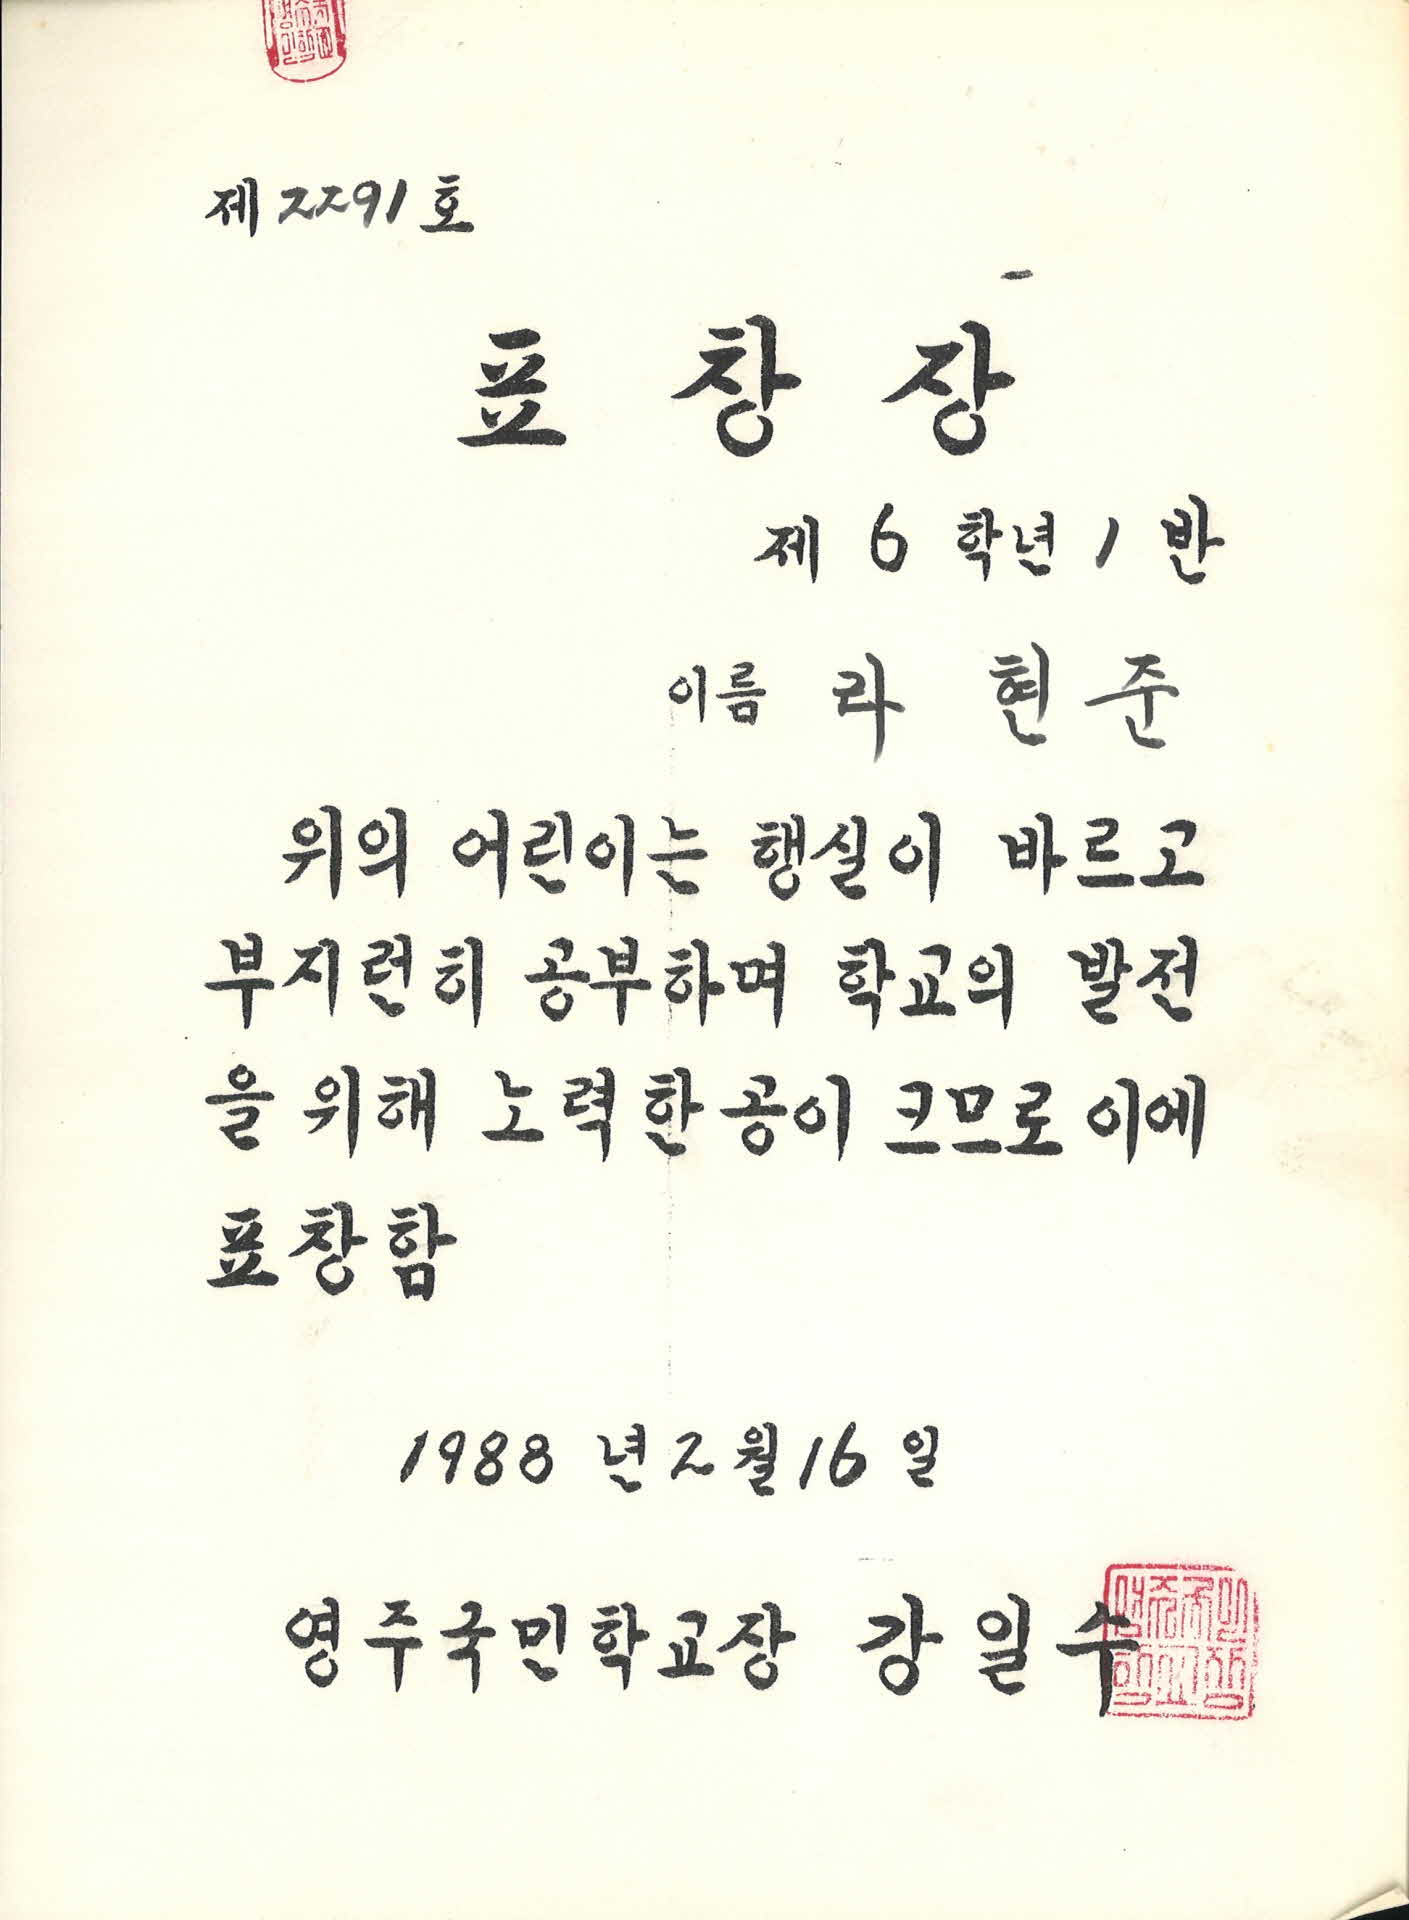 제2291호
표창장
제 6 학년 1 반
이름 라 현 준
위의 어린이는 행실이 바르고
부지런히 공부하며 학교의 발전
을 위해 노력한 공이 크므로 이에
표창함
1988 년 2 월 16 일
영주국민학교장 강일수